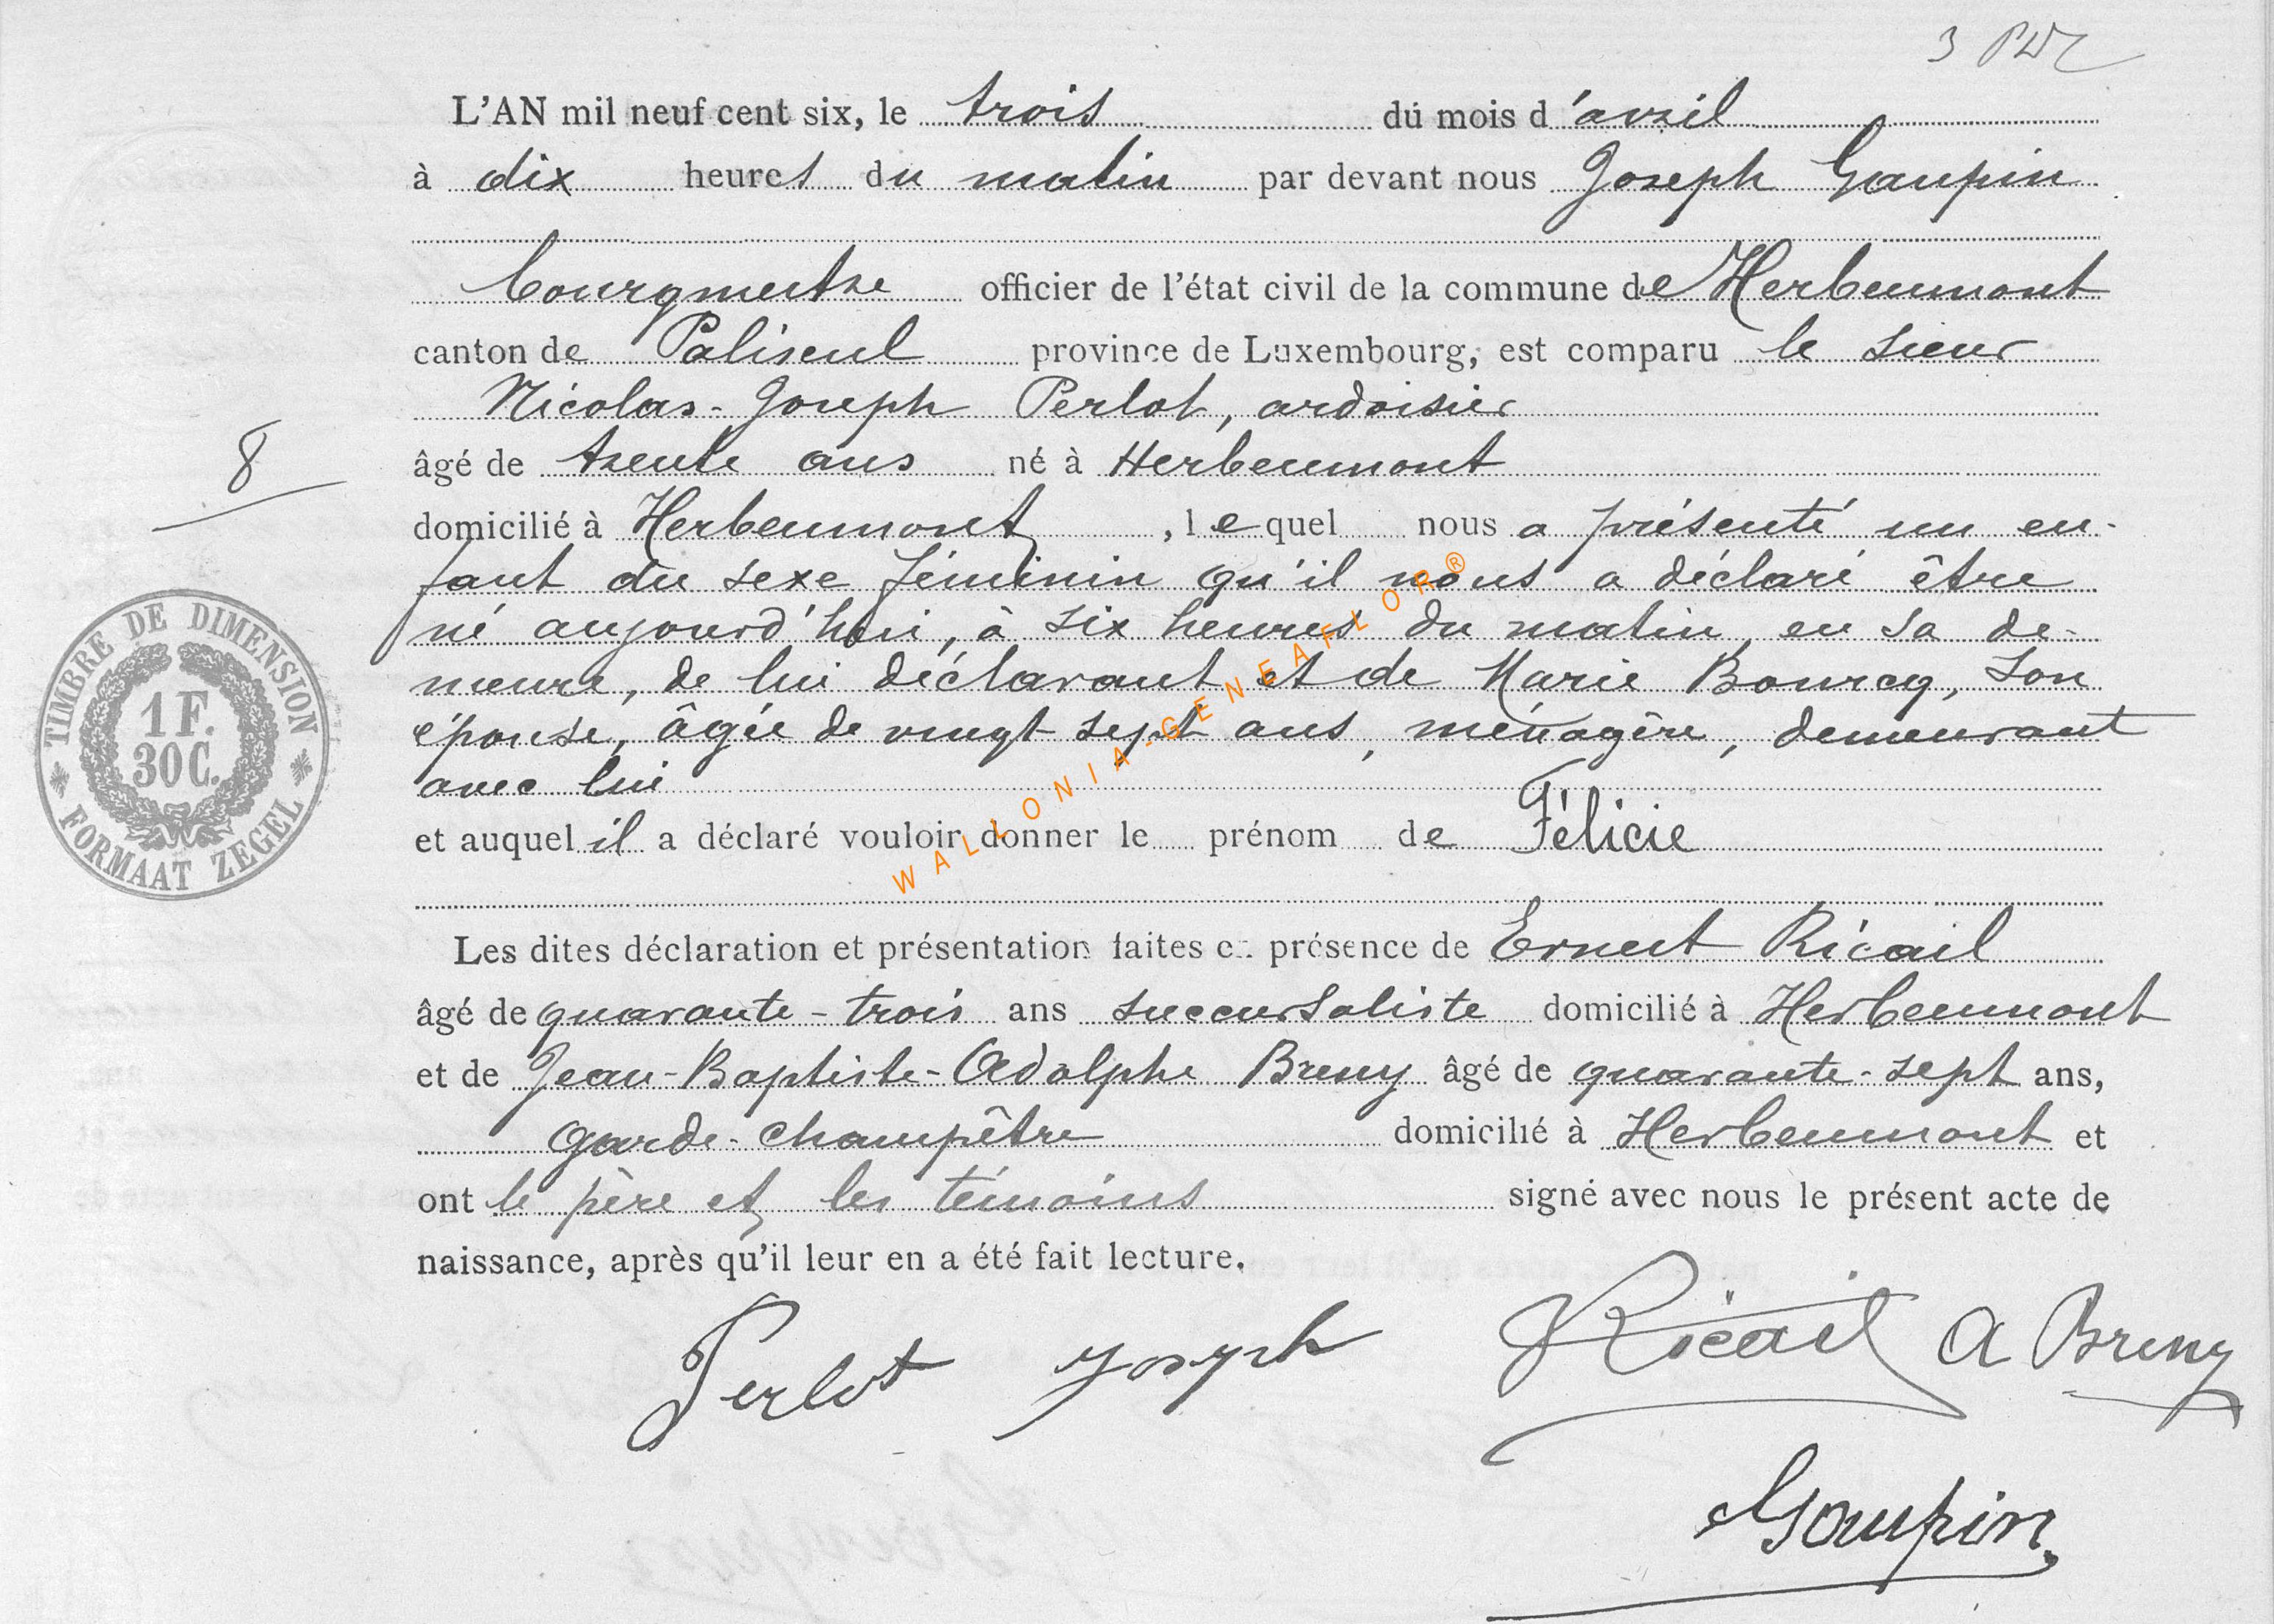 L'AN mil neuf cent six, le trois du mois d'avril
à dix heures du matin par devant nous Joseph Gaupin
bourgmestre officier de l'état civil de la commune de Herbeumont
canton de Paliseul province de Luxembourg, est comparu le sieur
Nicolas-Joseph Perlot, ardoisier
âgé de trente ans né à Herbeumont
8
domicilié à Herbeumont, lequel nous a présenté un en-
fant du sexe féminin qu'il nous a déclaré être
né aujourd'hui, à six heures du matin, en sa de-
meure, de lui déclarant et de Marie Bourcq, son
épouse, âgée de vingt-sept ans, ménagère, demeurant
avec lui
et auquel il a déclaré vouloir donner le prénom de Félicie
TIMBRE DE DIMENSION
1 F.
30 C.
FORMAAT ZEGEL
WALLONIA-GENEAFLOR®
Les dites déclaration et présentation faites en présence de Ernest Ricail
âgé de quarante-trois ans succursaliste domicilié à Herbeumont
et de Jean-Baptiste-Adolphe Breny âgé de quarante-sept ans,
garde-champêtre domicilié à Herbeumont et
ont le père et les témoins signé avec nous le présent acte de
naissance, après qu'il leur en a été fait lecture.
Perlot Joseph Ricail A Breny
Gaupin